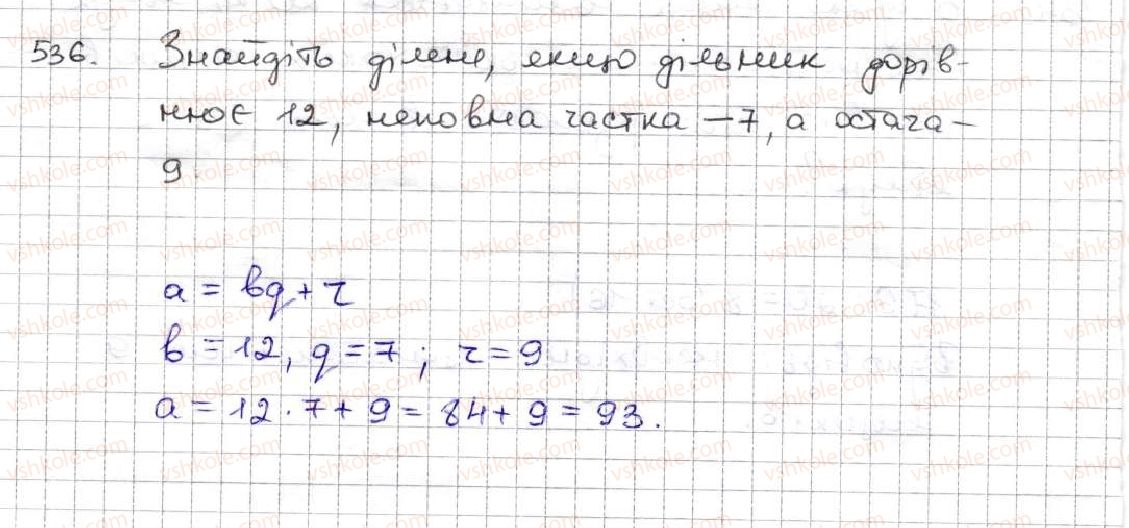 536. Знайдіть ділене, якщо дільник дорів-
нює 12, неповна частка – 7, а остача –
9.
a = bq + r
b = 12, q = 7; r = 9
a = 12 · 7 + 9 = 84 + 9 = 93.